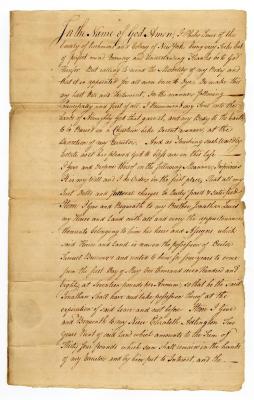 In the Name of God Amen, I
County of Richmond and Colony of New York being very Sick but
of perfect mind Memory and Understanding Thanks be to God
therefor But calling to mind the Mortality of my Body and
that it is appointed for all men once to Dye Do make this
my last Will and Testament In the manner following
Principally and first of all I Recommend my Soul into the
hands of Almighty God that gave it, and my Body to the Earth
to be Buried in a Christian like Decent manner, at the
discretion of my Executor And as Touching such Worldly
Estate wch has pleased God to bless me in this Life
I give and Dispose thereof in the following Manner,
It is my Will and I do Order in the first place, That all my
Just Debts and funeral charges be Duely paid &
Item I Give and Bequeath to my Brother Jonathan
my House and Land with all and every the appurtenances
thereunto belonging to him his heirs and Assigns, which
said House and Land is now in the possession of Doctor
Samuel and rented to him for four years to come
from the first Day of May One thousand seven Hundred and
Eighty, at Seventeen pounds per Annum, so that he the said
Jonathan Shall have and take possession thereof at the
expiration of said Lease and not before Item I Give
and Bequeath to my Niece Elizabeth Two
Years Rent of said Land which amounts to the Sum of
Thirty four pounds which sum Shall remain in the hands
of my Executor and by him put to Interest, and the